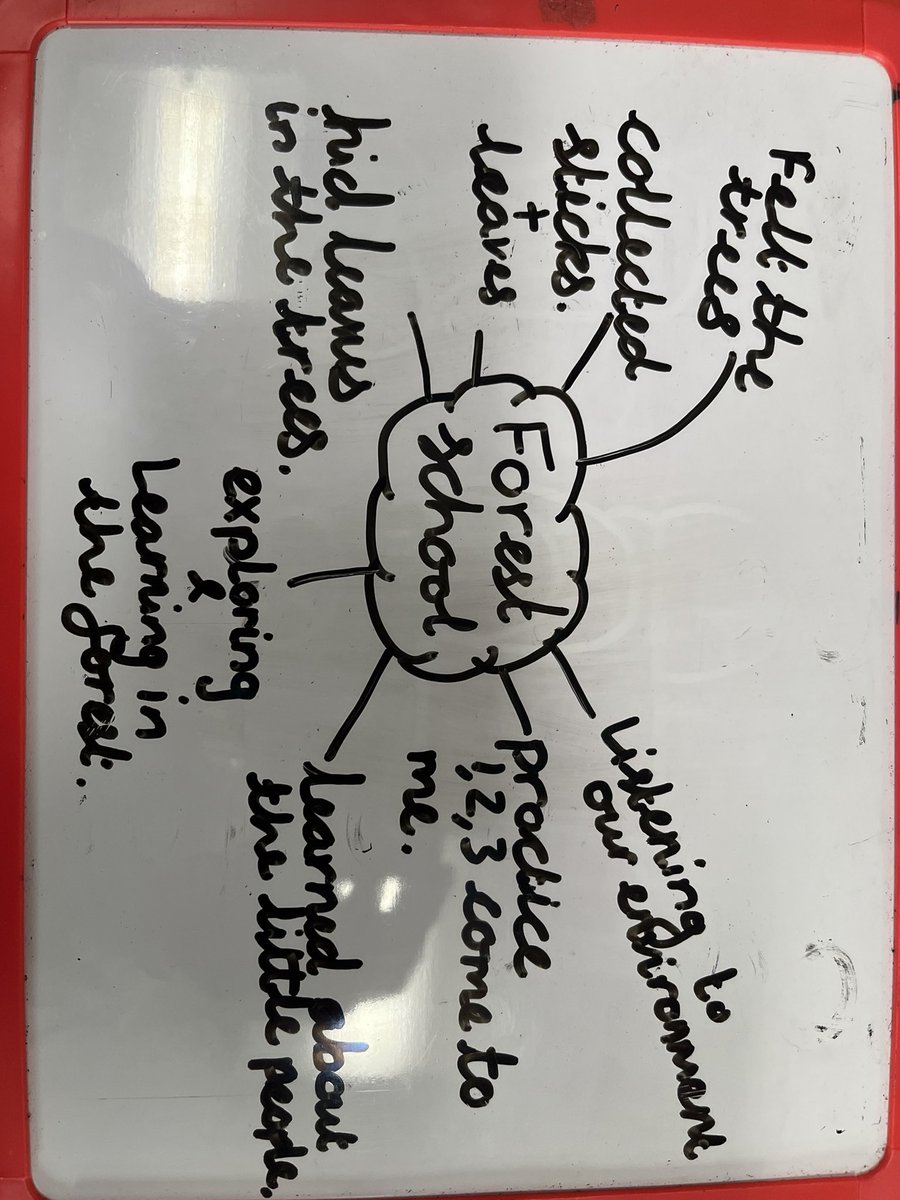 Felt the
trees
collected
sticks.
+
leaves
hid
in the trees.
Forest
school
Listening to
our environment
practice
1,2,3 come to
me.
learned about
the little people.
exploring
&
Learning in
the forest.